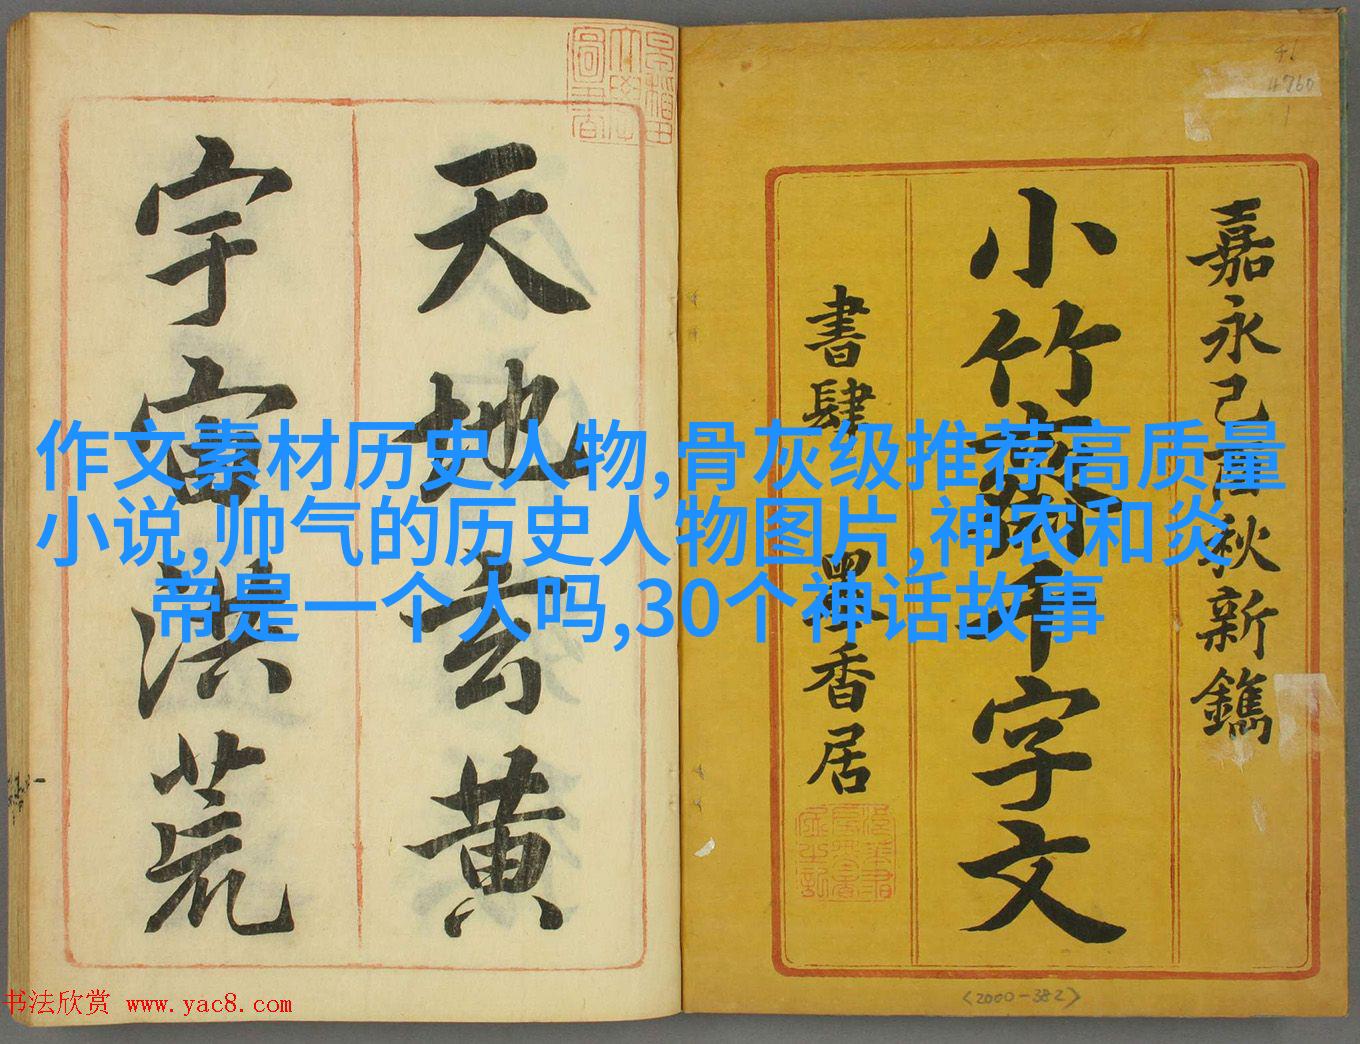 嘉永己酉秋新鐫
小竹齋千字文
書肆 墨香居
天地玄黄
宇宙洪荒
作文素材历史人物,骨灰级推荐高质量
小说,帅气的历史人物图片,神农和炎
帝是一个人吗,30个神话故事
46
4760
1
<2000-382>
书法欣赏 www.yac8.com